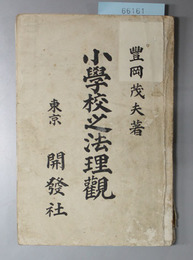 66161
豐岡茂夫著
小學校之法理觀
東京
開發社